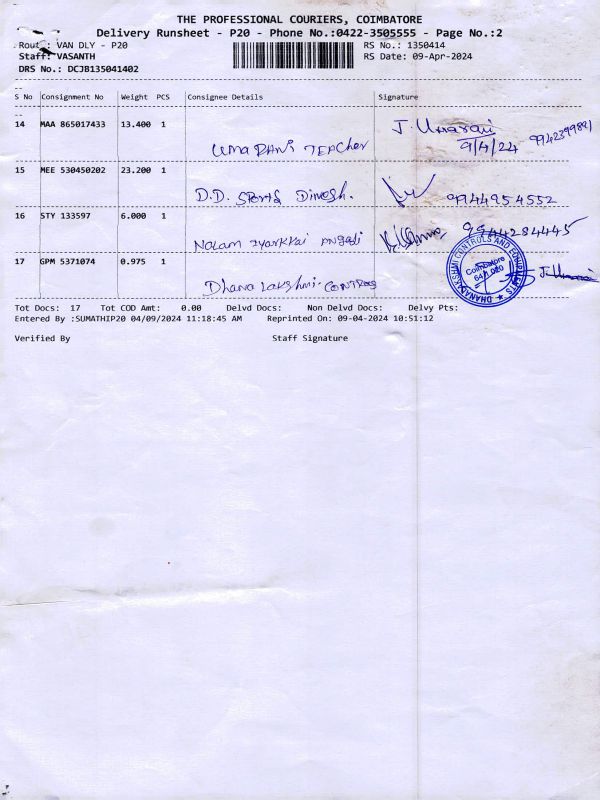 THE PROFESSIONAL COURIERS, COIMBATORE
Delivery Runsheet - P20 - Phone No.:0422-3505555 - Page No.:2
Route: VAN DLY - P20 RS No.: 1350414
Staff: VASANTH RS Date: 09-Apr-2024
DRS No.: DCJB135041402
S No Consignment No Weight PCS Consignee Details Signature
14 MAA 865017433 13.400 1 J. Umarani
UMA RANI TEACher 9/4/24
15 MEE 530450202 23.200 1
D.D. Sports Dinesh. 9944954552
16 STY 133597 6.000 1 9944284445
Nalam Iyarkkai Angadi
17 GPM 5371074 0.975 1
Dhana Lakshmi Controls J. Umarani
DHANALAKSHMI CONTROLS AND EQUIPMENTS
Coimbatore
641 020
Tot Docs: 17 Tot COD Amt: 0.00 Delvd Docs: Non Delvd Docs: Delvy Pts:
Entered By :SUMATHIP20 04/09/2024 11:18:45 AM Reprinted On: 09-04-2024 10:51:12
Verified By Staff Signature